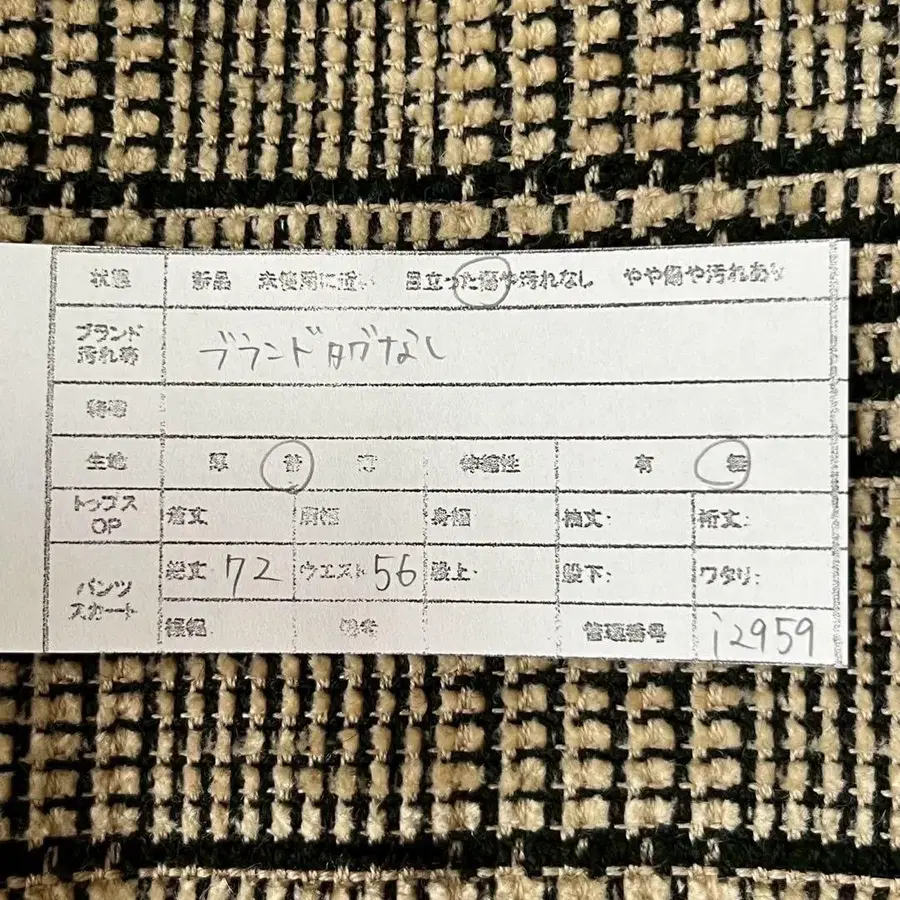 状態 新品 未使用に近い 目立った傷や汚れなし やや傷や汚れあり
ブランド
汚れ等
ブランドタグなし
特徴
生地 厚 普 薄 伸縮性 有 無
トップス
OP
着丈 肩幅 身幅 袖丈: 裄丈:
パンツ
スカート
総丈 72 ウエスト 56 股上: 股下: ワタリ:
裾幅 管理番号 i2959